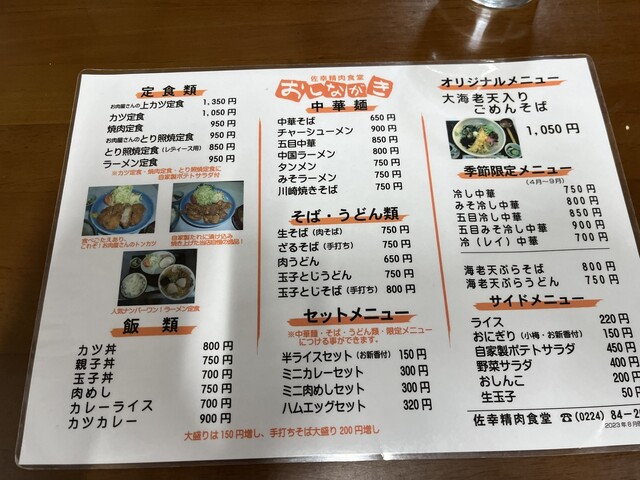 佐幸精肉食堂
おしながき
定食類
お肉屋さんの上カツ定食 1,350円
カツ定食 1,050円
焼肉定食 950円
お肉屋さんのとり照焼定食 950円
とり照焼定食(レディース用) 850円
ラーメン定食 950円
※カツ定食・焼肉定食・とり照焼定食に
自家製ポテトサラダ付
食べごたえあり、
これぞ!お肉屋さんのトンカツ
自家製たれに漬け込み
焼き上げた当店自慢の逸品!
人気ナンバーワン!ラーメン定食
飯類
カツ丼 800円
親子丼 750円
玉子丼 700円
肉めし 750円
カレーライス 700円
カツカレー 900円
中華麺
中華そば 650円
チャーシューメン 900円
五目中華 850円
中国ラーメン 800円
タンメン 750円
みそラーメン 750円
川崎焼きそば 750円
そば・うどん類
生そば(肉そば) 750円
ざるそば(手打ち) 750円
肉うどん 650円
玉子とじうどん 750円
玉子とじそば(手打ち) 800円
セットメニュー
※中華麺・そば・うどん類・限定メニュー
につける事ができます。
半ライスセット(お新香付) 150円
ミニカレーセット 300円
ミニ肉めしセット 300円
ハムエッグセット 320円
大盛りは150円増し、手打ちそば大盛り200円増し
オリジナルメニュー
大海老天入り
ごめんそば
1,050円
季節限定メニュー
(4月〜9月)
冷し中華 750円
みそ冷し中華 800円
五目冷し中華 850円
五目みそ冷し中華 900円
冷(レイ)中華 700円
海老天ぷらそば 800円
海老天ぷらうどん 750円
サイドメニュー
ライス 220円
おにぎり(小梅・お新香付) 150円
自家製ポテトサラダ 450円
野菜サラダ 400円
おしんこ 200円
生玉子 50円
佐幸精肉食堂 ☎(0224)84-2
2023年8月